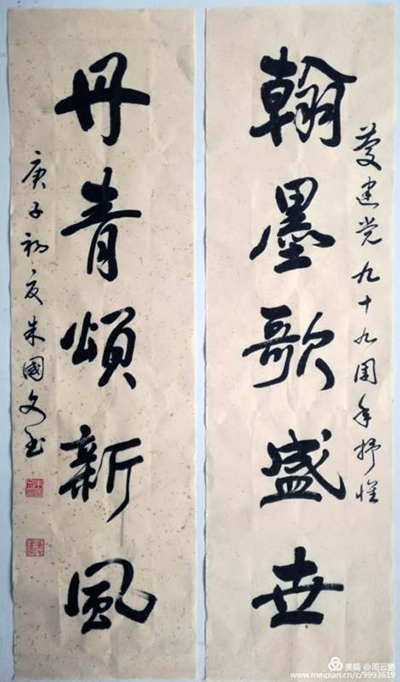 慶建党九十九周年抒懷
翰墨歌盛世
丹青頌新風
庚子初夏朱國文书
美篇 @周云
www.meipian.cn/c/9993619